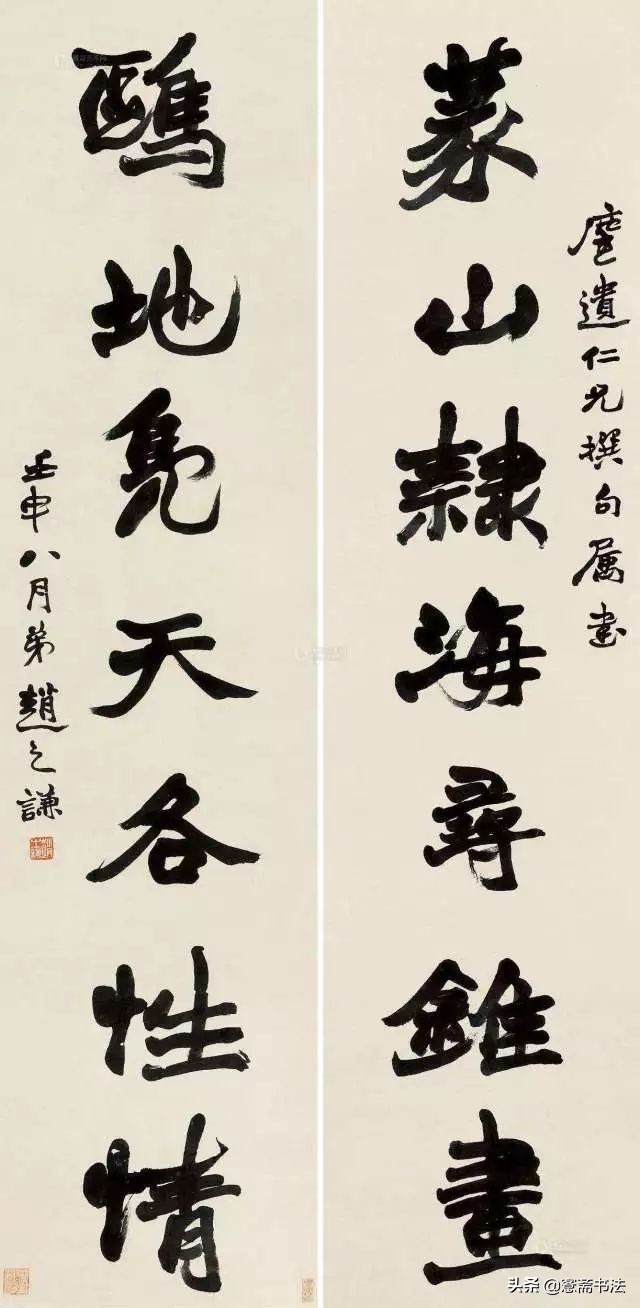 塵遺仁兄撰句屬書
篆山隸海尋錐畫
鷗地鳧天各性情
壬申八月弟趙之謙
头条 @斋书法